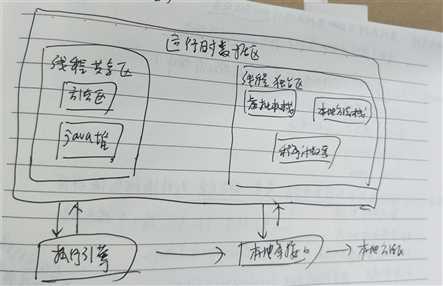 运行时数据区
线程共享区
线程独占区
方法区
虚拟机栈
本地方法栈
java堆
程序计数器
执行引擎
本地库接口
本地方法区